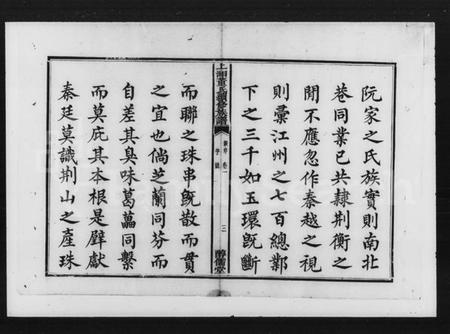 阮家之氏族實則南北
巷同業已共隸荆衡之
間不應忽作秦越之視
則彚江州之七百總鄴
下之三千如玉環旣斷
上湘
族譜
卷一
二
而聯之珠串旣散而貫
之宜也倘芝蘭同芬而
自差其臭味葛藟同繫
而莫庇其本根是璧獻
秦廷莫識荆山之產珠